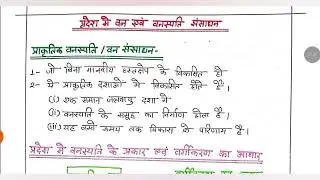 प्रदेश में वन एवं वनस्पति संसाधन
प्राकृतिक वनस्पति / वन संसाधन-
1- जो बिना मानवीय हस्तक्षेप के विकसित हो
2- ये प्राकृतिक दशाओं में विकसित होते हैं।
(i) एक समान जलवायु दशा में
(ii) वनस्पति के समूह का निर्माण होता है।
(iii) यह लम्बे समय तक विकास के परिणाम है।
प्रदेश में वनस्पति के प्रकार एवं वर्गीकरण का आधार